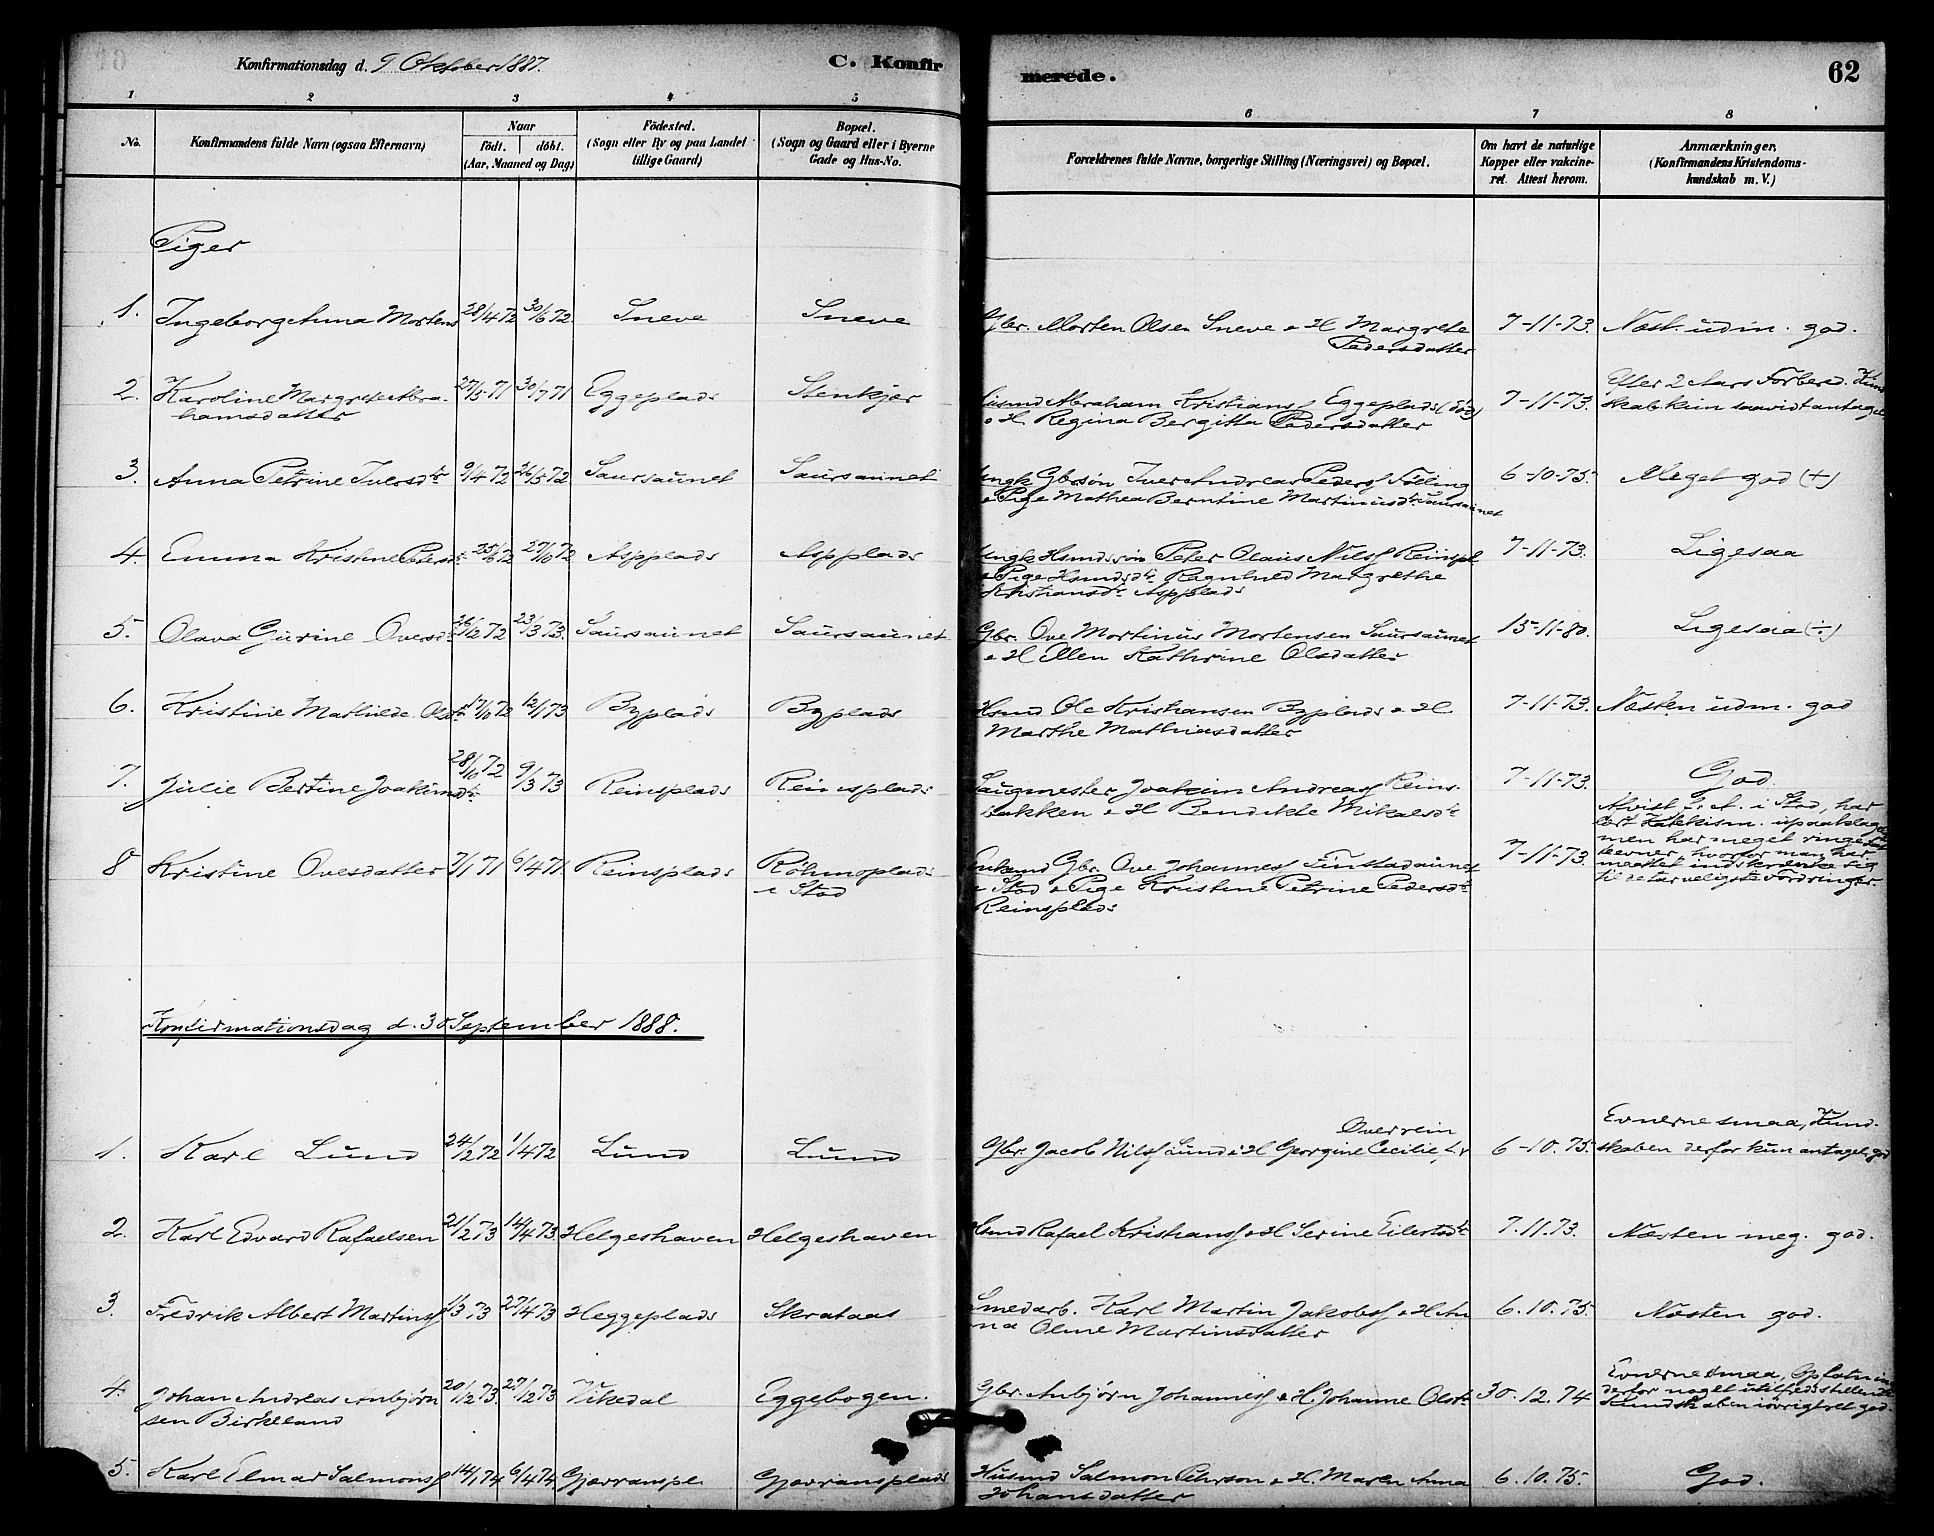 Konfirmationsdag d. 9 Oktober 1887.
C. Konfirmerede.
62
1 2 3 4 5 6 7 8
No.
Konfirmandens fulde Navn (ogsaa Efternavn)
Naar
födt. döbt.
(Aar, Maaned og Dag)
Födested.
(Sogn eller By og paa Landet
tillige Gaard)
Bopæl.
(Sogn og Gaard eller i Byerne
Gade og Hus-No.
Forældrenes fulde Navne, borgerlige Stilling (Næringsvei) og Bopæl.
Om havt de naturlige
Kopper eller vakcine-
ret. Attest herom.
Anmærkninger,
(Konfirmandens Kristendoms-
kundskab m. V.)
Piger
1. Ingeborg Anna Mortens 28/4 72 30/6 72 Sneve Sneve Gbr. Morten Olsen Sneve & H Margrete 7-11-73. Næst. udm. god.
Pedersdatter
2. Karoline Margrete Abra- 27/5 71 30/7 71 Eggeplads Stenkjær Husmd Abraham Kristians Eggeplads (död) 7-11-73. Efter 2 Aars Forbered. Kund
hamsdatter & H. Regina Bergitta Pedersdatter skab kun saavidt antagel
3. Anna Petrine Iversdtr 9/4 72 26/5 72 Saursaunet Saursaunet Ungk Gbrsön Iver Andreas Peders Fölling 6-10-75. Meget god (+)
& Pige Mathea Berntine Martinusdtr Saursaunet
4. Emma Kristine Petersdtr 25/6 72 27/10 72 Aspplads Aspplads Ungk Hsmdssön Peter Olaus Nilss Reinspl 7-11-73. Ligesaa
& Pige Hsmdsdtr Ragnhild Margrethe
Kristiansdtr Aspplads
5. Olava Gurine Ovesdtr 26/12 72 23/3 73. Saursaunet Saursaunet Gbr. Ove Mortinus Mortensen Saursaunet 15-11-80. Ligesaa (÷)
& H Ellen Kathrine Olsdatter
6. Kristine Mathilde Olsdtr 17/10 72 12/1 73 Byplads Byplads Hsmd Ole Kristiansen Byplads & H. 7-11-73. Næsten udm. god
Marthe Mathiasdatter
7. Julie Bertine Joakimsdtr 28/10 72 9/3 73 Reinsplads Reinsplads Saugmester Joakim Andreass Reins- 7-11-73. God
bakken & H Bendikte Mikaelsdtr
8 Kristine Ovesdatter 7/1 71 6/4 71. Reinsplads Röhmoplads Enkemd Gbr. Ove Johanness Finstadaunet 7-11-73. Afvist f. A. i Stod, har
i Stod i Stod & Pige Kristine Petrine Pedersdtr lært Katekism. upaaklagel
Reinsplads men har meget ringe
Evner, hvorfor man har
maattet indskrænke sig
til de tarveligste Fordringer
Konfirmationsdag d. 30 September 1888.
1. Karl Lund 24/2 72 1/4 72 Lund Lund Gbr. Jacob Nilss Lund & H Georgine Cecilie f. Overrein 6-10.75. Evnerne smaa, Kund-
skaben derfor kun antagel. god
2. Karl Edvard Rafaelsen 21/2 73 14/4 73. Helgeshaven Helgeshaven Hsmd Rafael Kristians & H Serine Eilertsdtr 7.11.73. Næsten meg. god.
3. Fredrik Albert Martins 1/3 73 27/4 73 Heggeplads Skrataas Smedarb. Karl Martin Jakobs & H An 6.10.75. Næsten god.
na Oline Martinsdatter
4. Johan Andreas Anbjörn 20/12 73. 27/12 73 Vikedal Eggebogen. Gbr. Anbjörn Johanness & H. Johanne Olsdtr 30.12.74 Evnerne smaa, Opfatnin
sen Birkeland derfor noget utilfredsstillende
Kundskaben iövrigt ret god.
5. Karl Elmar Salmons 14/1 74 6/4 74. Gjævranspl Gjævransplads Husmd Salmon Pehrson & H. Maren Anna 6.10.75. God.
Johansdatter